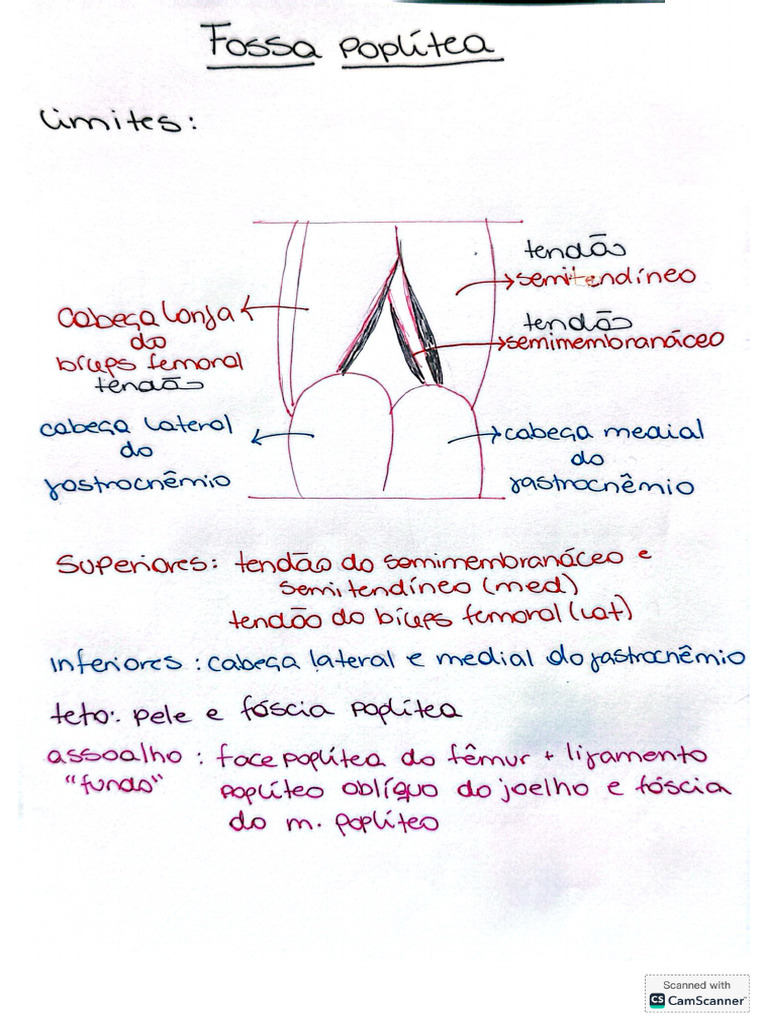 Fossa poplítea
Limites:
tendão
semitendíneo
cabeça longa
do
bíceps femoral
tendão
tendão
semimembranáceo
cabeça lateral
do
gastrocnêmio
cabeça medial
do
gastrocnêmio
Superiores: tendão do semimembranáceo e
semitendíneo (med)
tendão do bíceps femoral (lat)
Inferiores: cabeça lateral e medial do gastrocnêmio
teto: pele e fáscia poplítea
assoalho : face poplítea do fêmur + ligamento
"fundo" poplíteo oblíquo do joelho e fáscia
do m. poplíteo
Scanned with
CS CamScanner